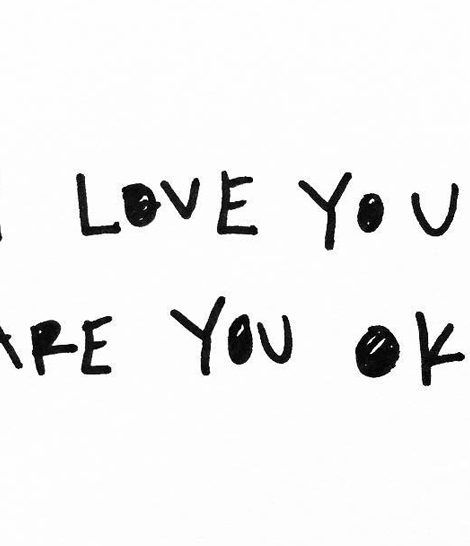 I LOVE YOU
ARE YOU OK